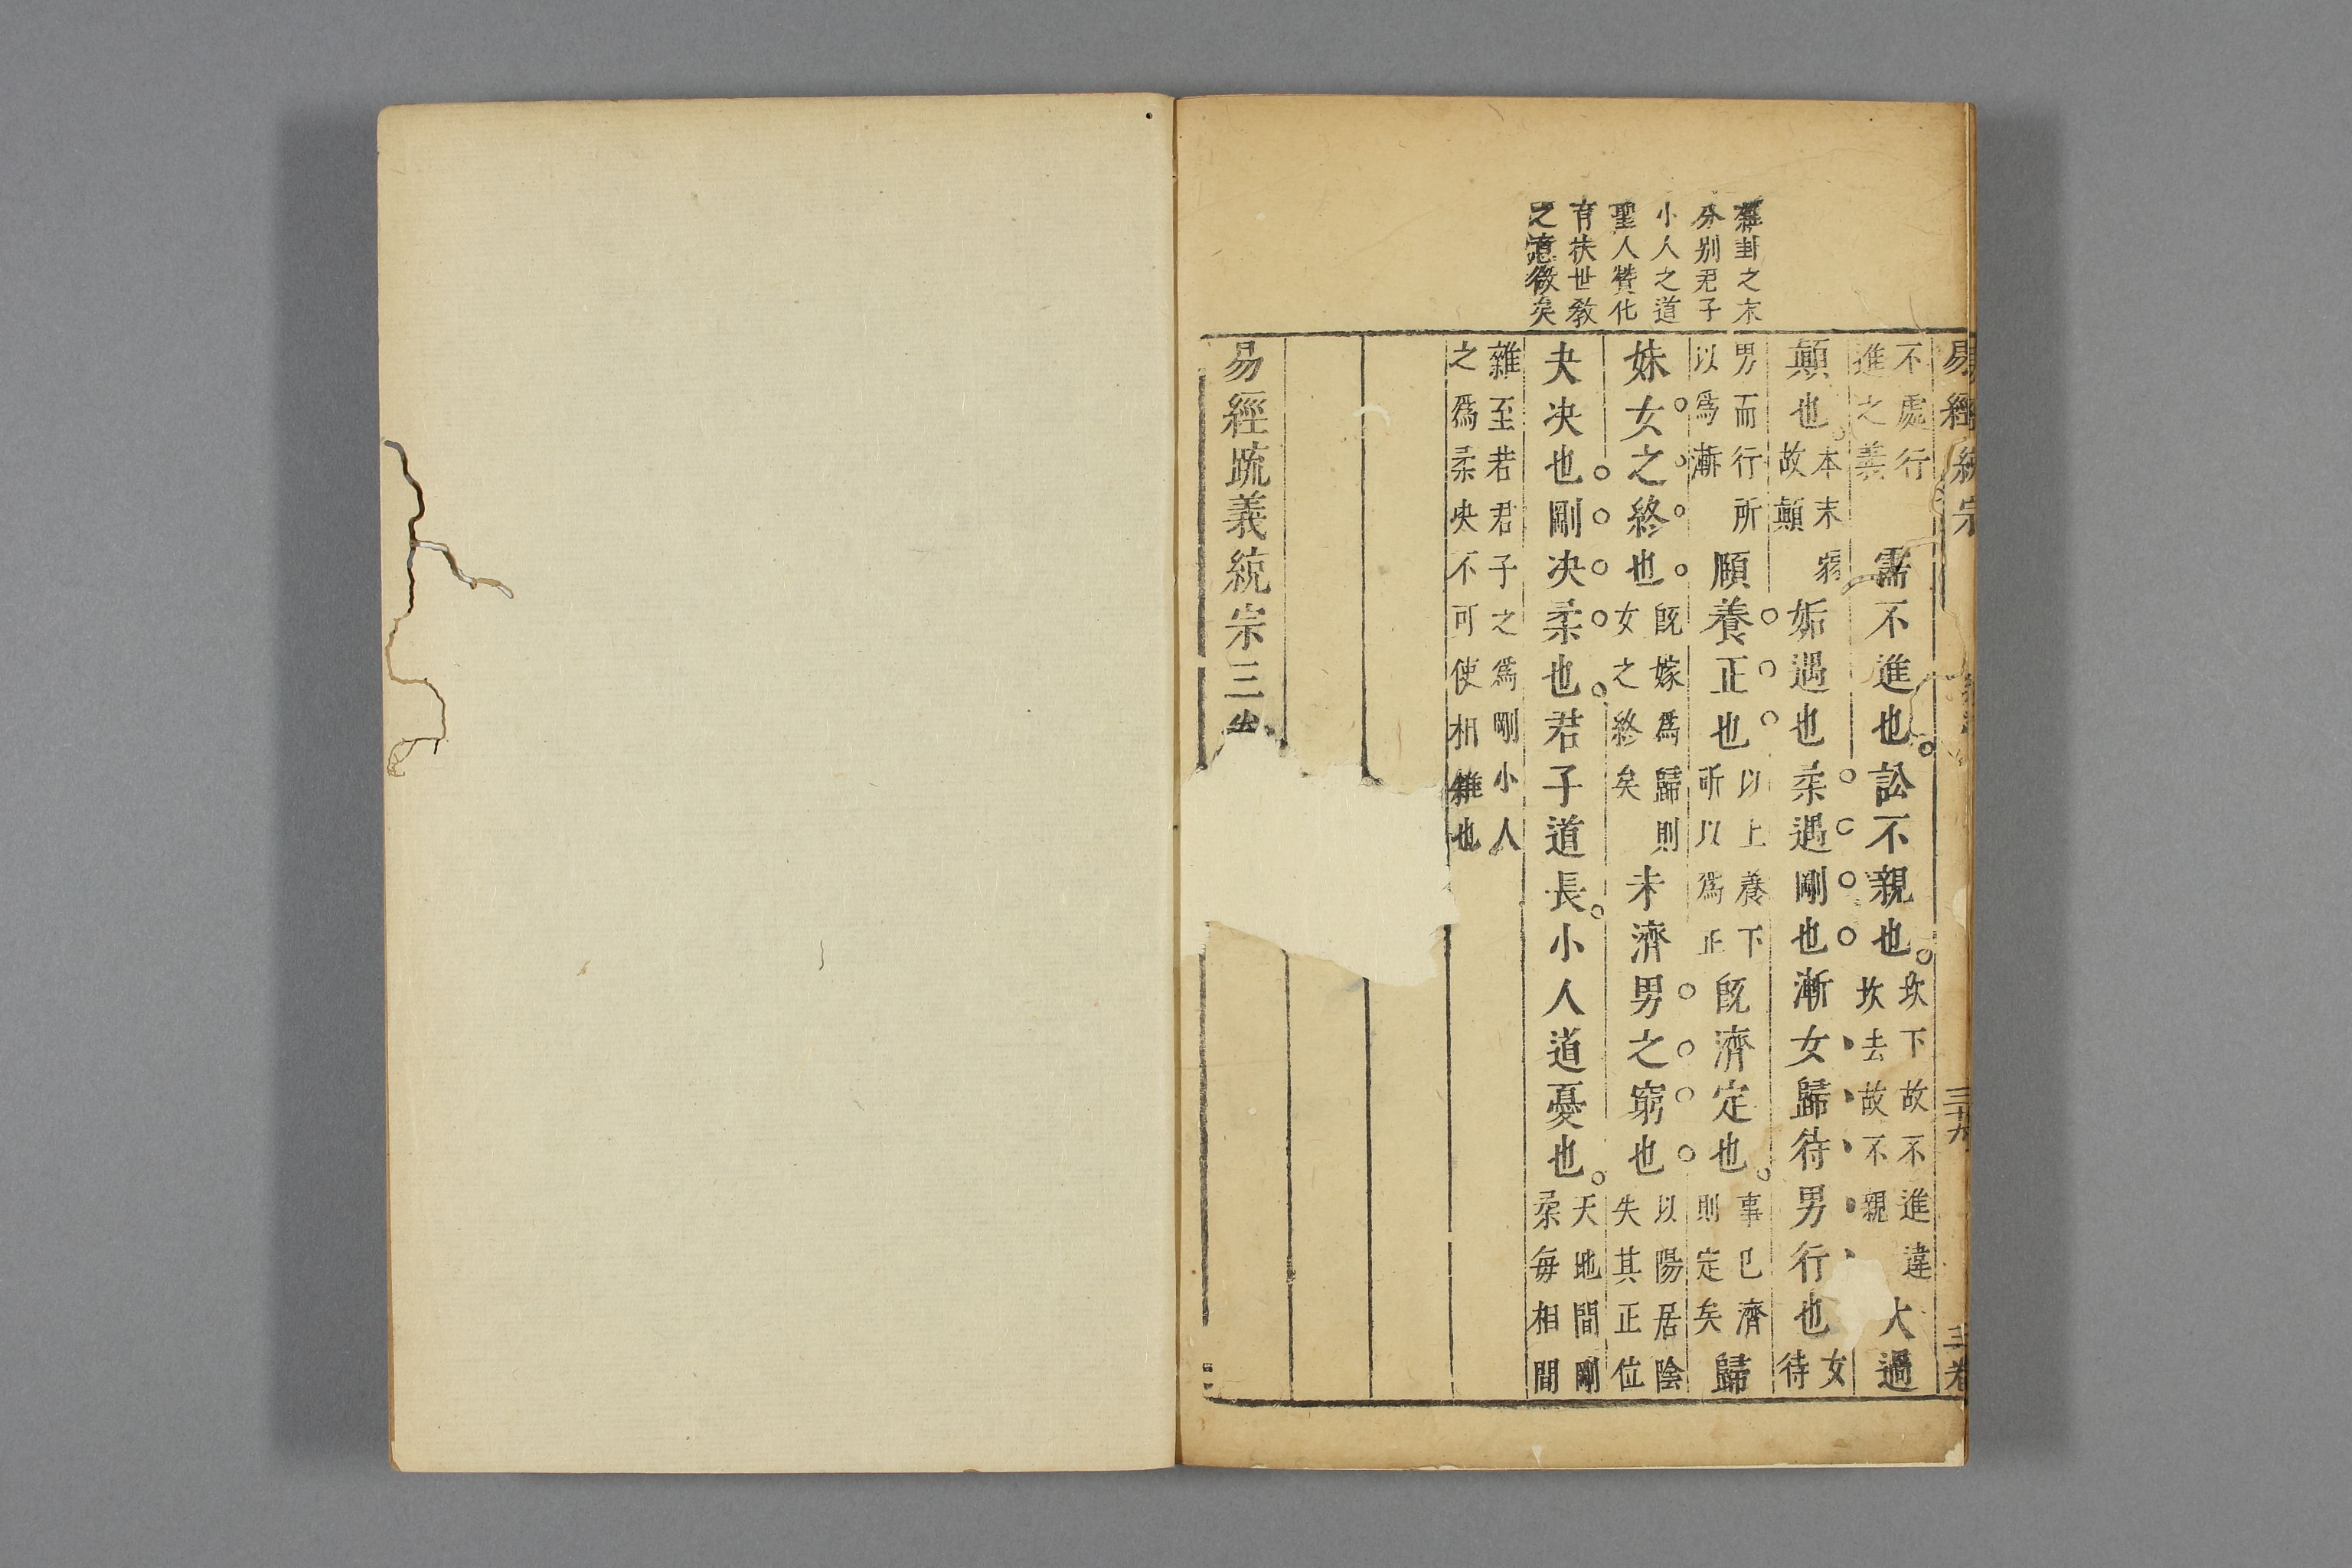 雜卦之末
分别君子
小人之道
聖人贊化
育扶世教
之意微矣
易經統宗
三十九
三卷
不處行
進之義
需不進也訟不親也
坎下故不進違
坎去故不親
大過
顛也
本末弱
故顛
姤遇也柔遇剛也漸女歸待男行也
女
待
男而行所
以爲漸
頤養正也
以上養下
所以爲正
旣濟定也
事已濟
則定矣
歸
妹女之終也
旣嫁爲歸則
女之終矣
未濟男之窮也
以陽居陰
失其正位
夬决也剛决柔也君子道長小人道憂也
天地間剛
柔每相間
雜至若君子之爲剛小人
之爲柔央不可使相雜也
易經䟽義統宗三